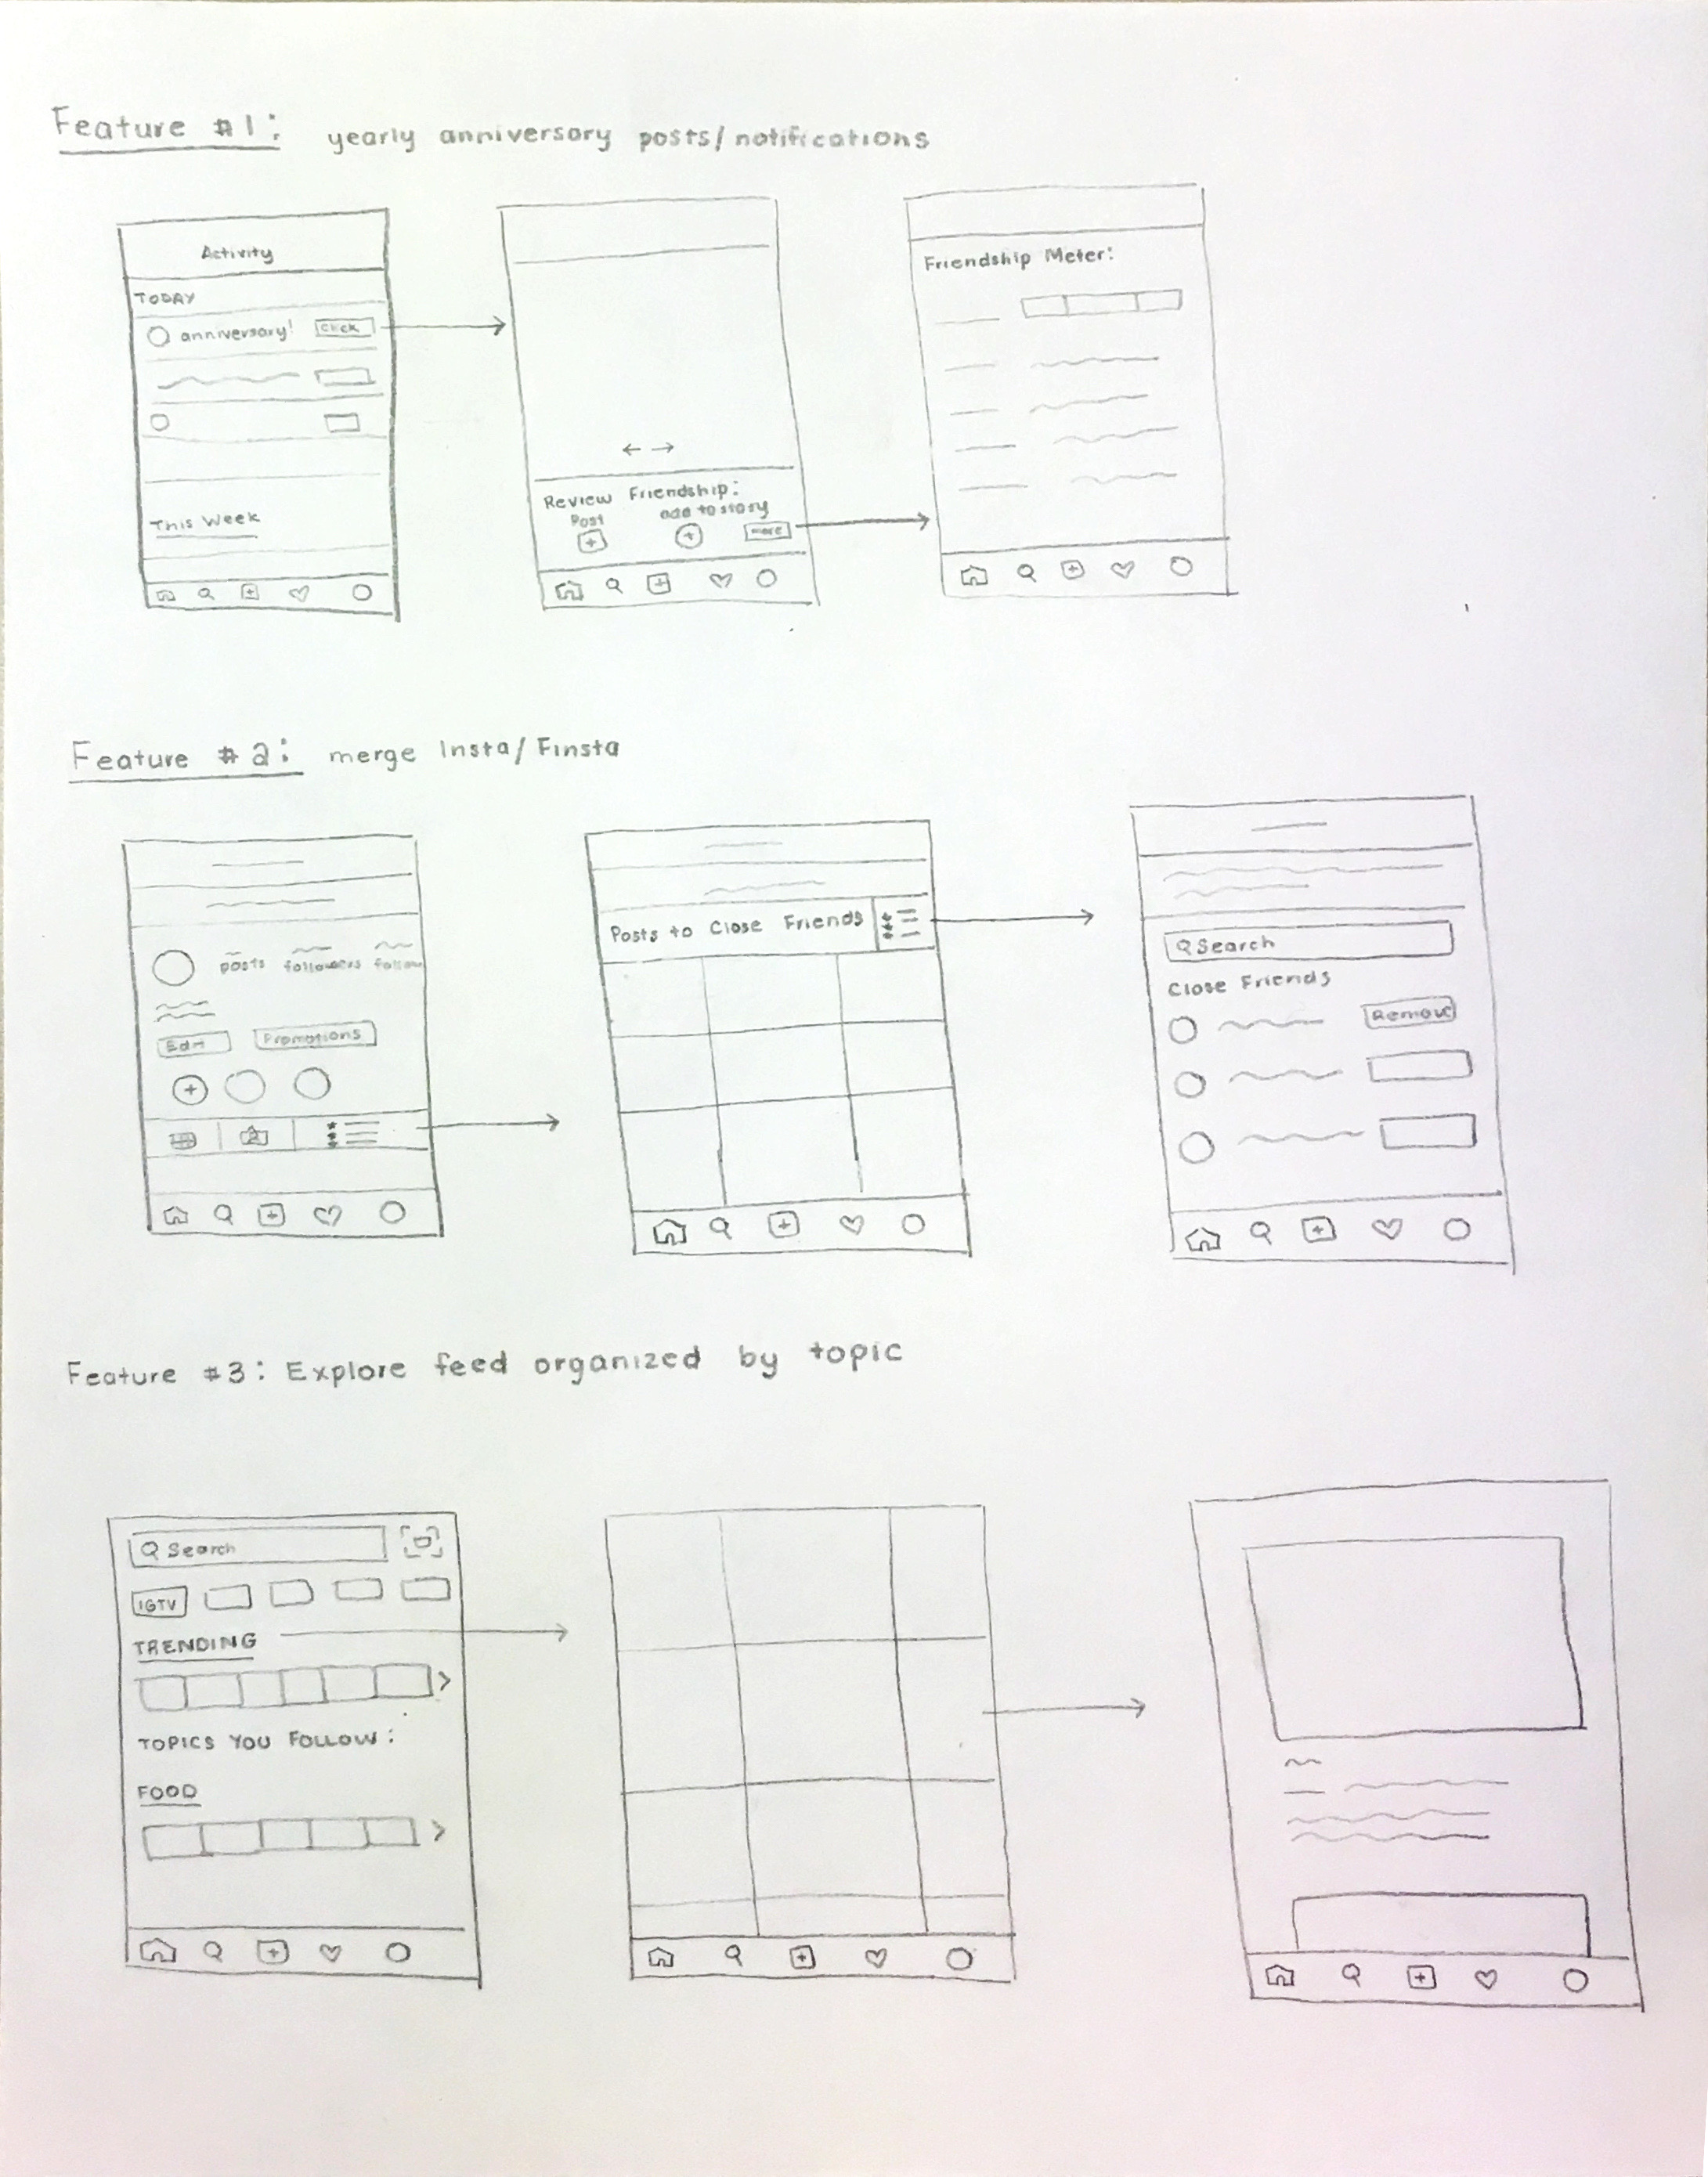 Feature #1: yearly anniversary posts/notifications
Activity
TODAY
anniversary! Click
This Week
Review Friendship:
Post add to story
more
Friendship Meter:
Feature #2: merge Insta/Finsta
posts followers follow
Edit Promotions
Posts to Close Friends
Search
Close Friends
Remove
Feature #3: Explore feed organized by topic
Search
IGTV
TRENDING
TOPICS YOU FOLLOW:
FOOD